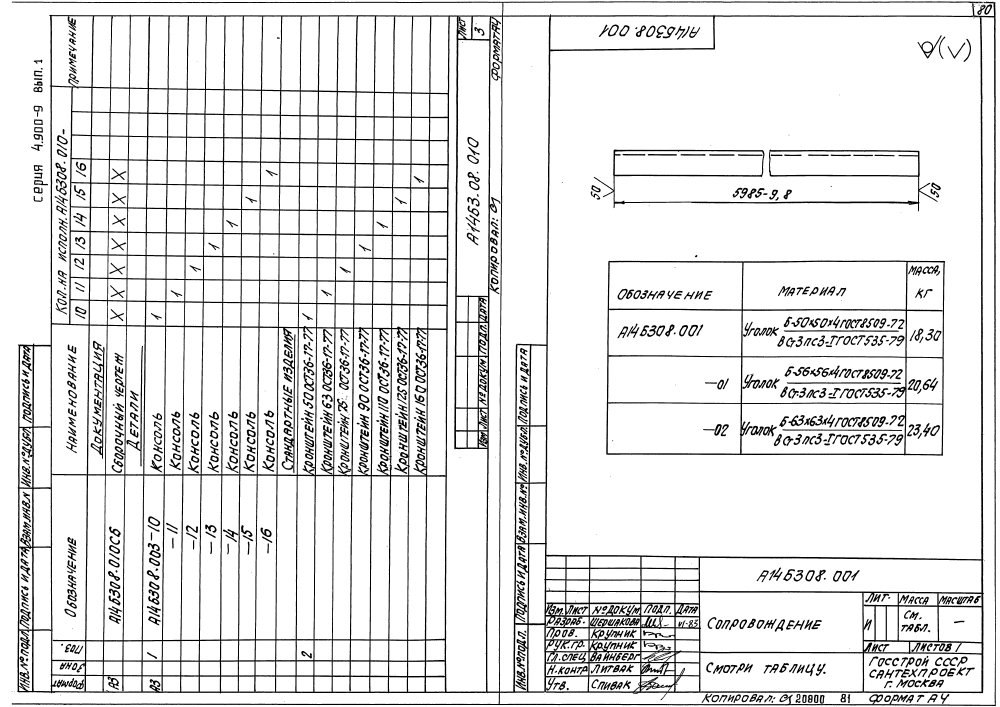 80
серия 4.900-9 вып.1
Формат
Зона
Поз.
Обозначение
Наименование
Кол. на исполн. А14Б308.010-
Примечание
10 11 12 13 14 15 16
Документация
А3 А14Б308.010СБ Сборочный чертеж X X X X X X X
Детали
А3 1 А14Б308.003-10 Консоль 1
-11 Консоль 1
-12 Консоль 1
-13 Консоль 1
-14 Консоль 1
-15 Консоль 1
-16 Консоль 1
Стандартные изделия
2 Кронштейн 50 ОСТ36-17-77 1
Кронштейн 63 ОСТ36-17-77 1
Кронштейн 75 ОСТ36-17-77 1
Кронштейн 90 ОСТ36-17-77 1
Кронштейн 110 ОСТ36-17-77 1
Кронштейн 125 ОСТ36-17-77 1
Кронштейн 160 ОСТ36-17-77 1
Инв.№подл. Подпись и дата Взам.инв.№ Инв.№дубл. Подпись и дата
Изм. Лист №докум. Подп. Дата
А14Б3.08.010
Лист
3
Копировал:
Формат А4
А14Б308.001
√(√)
50
5985-9,8
50
Обозначение Материал Масса, кг
А14Б308.001 Уголок Б-50х50х4 ГОСТ8509-72 18,30
ВСт3пс3-I ГОСТ535-79
-01 Уголок Б-56х56х4 ГОСТ8509-72 20,64
ВСт3пс3-I ГОСТ535-79
-02 Уголок Б-63х63х4 ГОСТ8509-72 23,40
ВСт3пс3-I ГОСТ535-79
Инв.№подл. Подпись и дата Взам.инв.№ Инв.№дубл. Подпись и дата
А14Б308.001
Изм. Лист №докум. Подп. Дата
Разраб. Шершакова VI-83
Пров. Крупник
Рук.гр. Крупник
Гл.спец. Вайнберг
Н.контр. Литвак
Утв. Спивак
Сопровождение
Смотри таблицу.
Лит. Масса Масштаб
И См. табл. —
Лист Листов 1
Госстрой СССР
Сантехпроект
г. Москва
Копировал: 20800 81 Формат А4